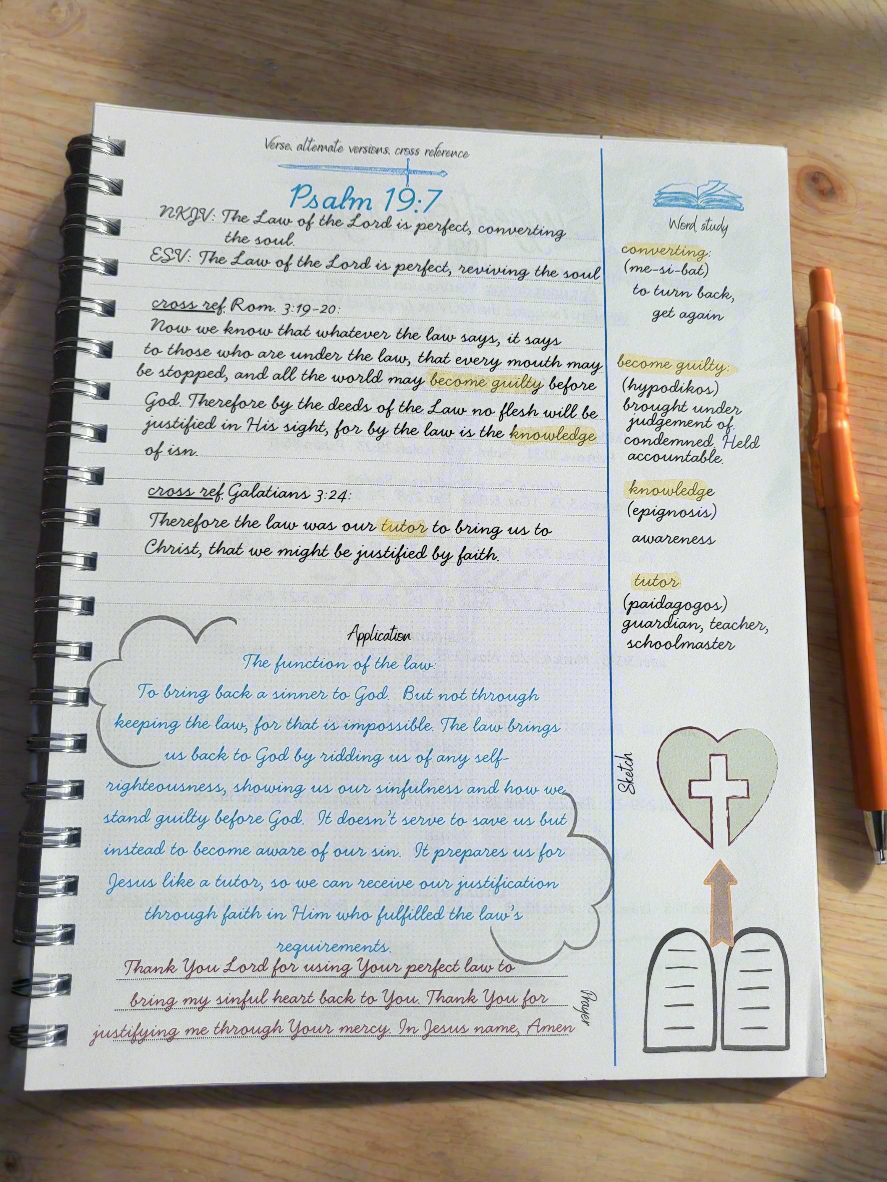 Verse, alternate versions, cross reference
Psalm 19:7
NKJV: The Law of the Lord is perfect, converting
the soul.
ESV: The Law of the Lord is perfect, reviving the soul
cross ref Rom. 3:19-20:
Now we know that whatever the law says, it says
to those who are under the law, that every mouth may
be stopped, and all the world may become guilty before
God. Therefore by the deeds of the Law no flesh will be
justified in His sight, for by the law is the knowledge
of isn.
cross ref Galatians 3:24:
Therefore the law was our tutor to bring us to
Christ, that we might be justified by faith.
Application
The function of the law:
To bring back a sinner to God. But not through
keeping the law, for that is impossible. The law brings
us back to God by ridding us of any self-
righteousness, showing us our sinfulness and how we
stand guilty before God. It doesn't serve to save us but
instead to become aware of our sin. It prepares us for
Jesus like a tutor, so we can receive our justification
through faith in Him who fulfilled the law's
requirements.
Thank You Lord for using Your perfect law to
bring my sinful heart back to You. Thank You for
justifying me through Your mercy. In Jesus name, Amen
Prayer
Word study
converting:
(me-si-bat)
to turn back,
get again
become guilty:
(hypodikos)
brought under
judgement of
condemned. Held
accountable.
knowledge
(epignosis)
awareness
tutor
(paidagogos)
guardian, teacher,
schoolmaster
Sketch